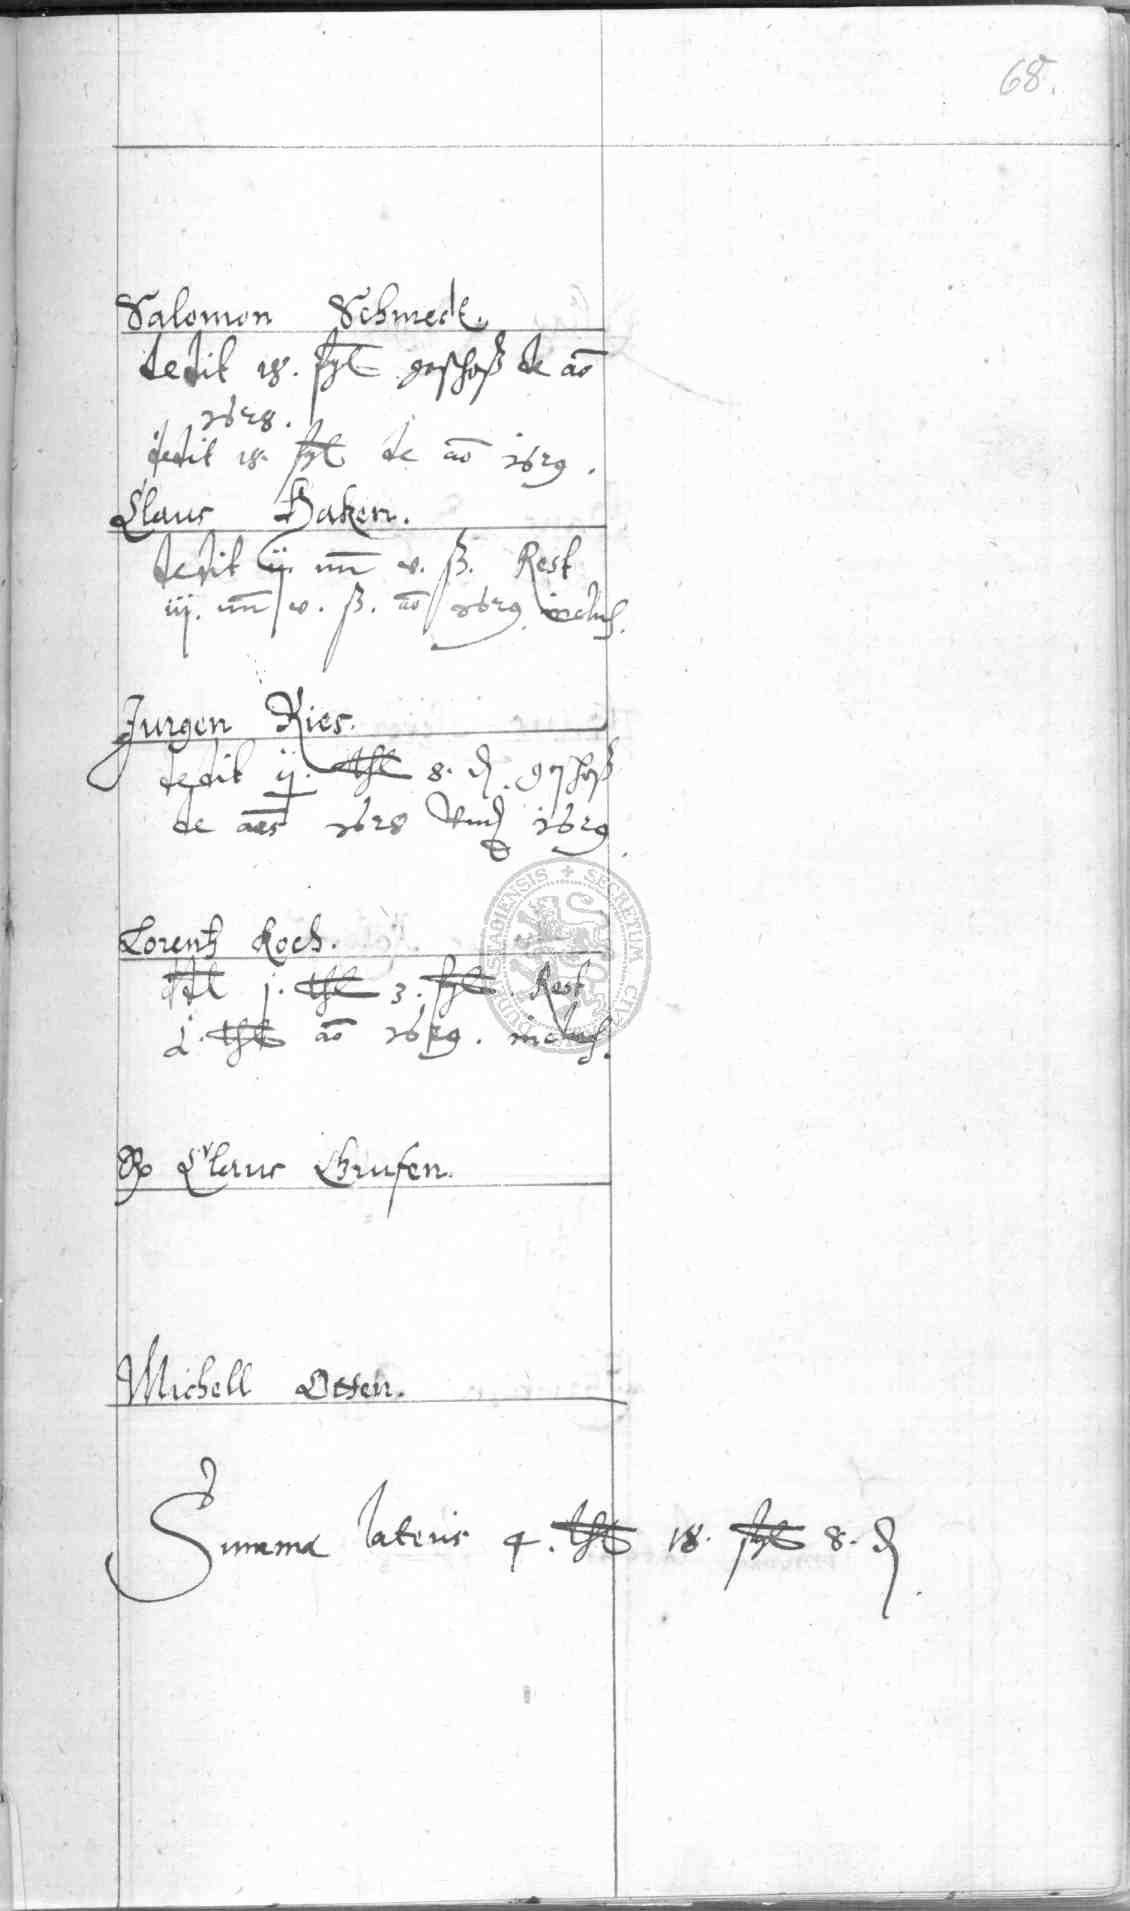 68.
Salomon Schmedt.
dedit 18. ßl geschoß de ao
1628.
dedit 18. ßl de ao 1629.
Claus Haken.
dedit ij. mℓ v. ß. Rest
iij. mℓ v. ß. ao 1629 inclus.
Jurgen Ries.
dedit ij. thl 8. ₰ geschoß
de aes 1628 Und 1629.
Lorentz Koch.
dt j. thl 3. ßl. Rest
1. thl ao 1629. inclus.
Claus Crusen.
Michell Otten.
Summa lateris 4. thl 18. ßl 8. ₰
SECRETUM CIV DUDERSTADIENSIS